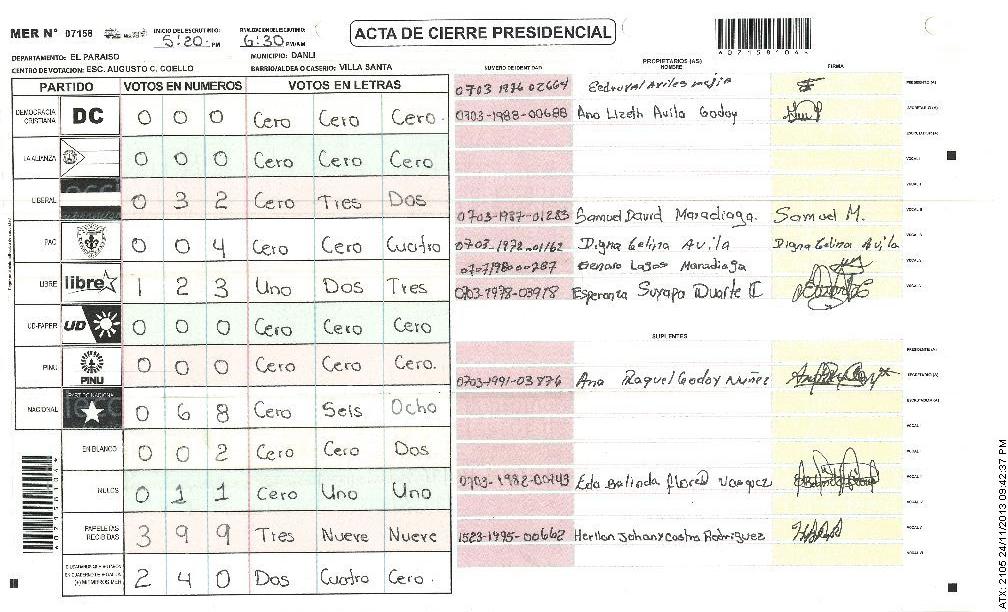 MER N° 07158 INICIO DEL ESCRUTINIO: 5:20 PM FINALIZACION DEL ESCRUTINIO: 6:30 PM/AM
ACTA DE CIERRE PRESIDENCIAL
DEPARTAMENTO: EL PARAISO MUNICIPIO: DANLI
CENTRO DE VOTACION: ESC. AUGUSTO C. COELLO BARRIO/ALDEA O CASERIO: VILLA SANTA
PARTIDO VOTOS EN NUMEROS VOTOS EN LETRAS
DEMOCRACIA CRISTIANA DC 0 0 0 Cero Cero Cero.
LA ALIANZA 0 0 0 Cero Cero Cero
LIBERAL 0 3 2 Cero Tres Dos
PAC 0 0 4 Cero Cero Cuatro
LIBRE libre 1 2 3 Uno Dos Tres
UD-FAPER UD 0 0 0 Cero Cero Cero
PINU PINU 0 0 0 Cero Cero Cero.
NACIONAL 0 6 8 Cero Seis Ocho
EN BLANCO 0 0 2 Cero Cero Dos
NULOS 0 1 1 Cero Uno Uno
PAPELETAS RECIBIDAS 3 9 9 Tres Nueve Nueve
2 4 0 Dos Cuatro Cero.
PROPIETARIOS (AS)
NUMERO DE IDENTIDAD NOMBRE FIRMA
0703 1976 02664 PRESIDENTE (A)
0703-1988-00688 Ana Lizeth Avila Godoy SECRETARIO (A)
ESCRUTADOR (A)
VOCAL I
0703-1987-01283 Samuel David Maradiaga. Samuel M.
0703-1972-01162 Digna Celina Avila Digna Celina Avila
Genaro Lagos Maradiaga
0703-1978-03918 Esperanza Suyapa Duarte
SUPLENTES
PRESIDENTE (A)
0703-1991-03876 Ana Raquel Godoy Nuñez SECRETARIO (A)
ESCRUTADOR (A)
0703-1982-00243 Eda Balinda Flores Vasquez
1523-1995-00662 Herllan Johany Castro Rodriguez
ATX: 2105 24/11/2013 09:42:37 PM